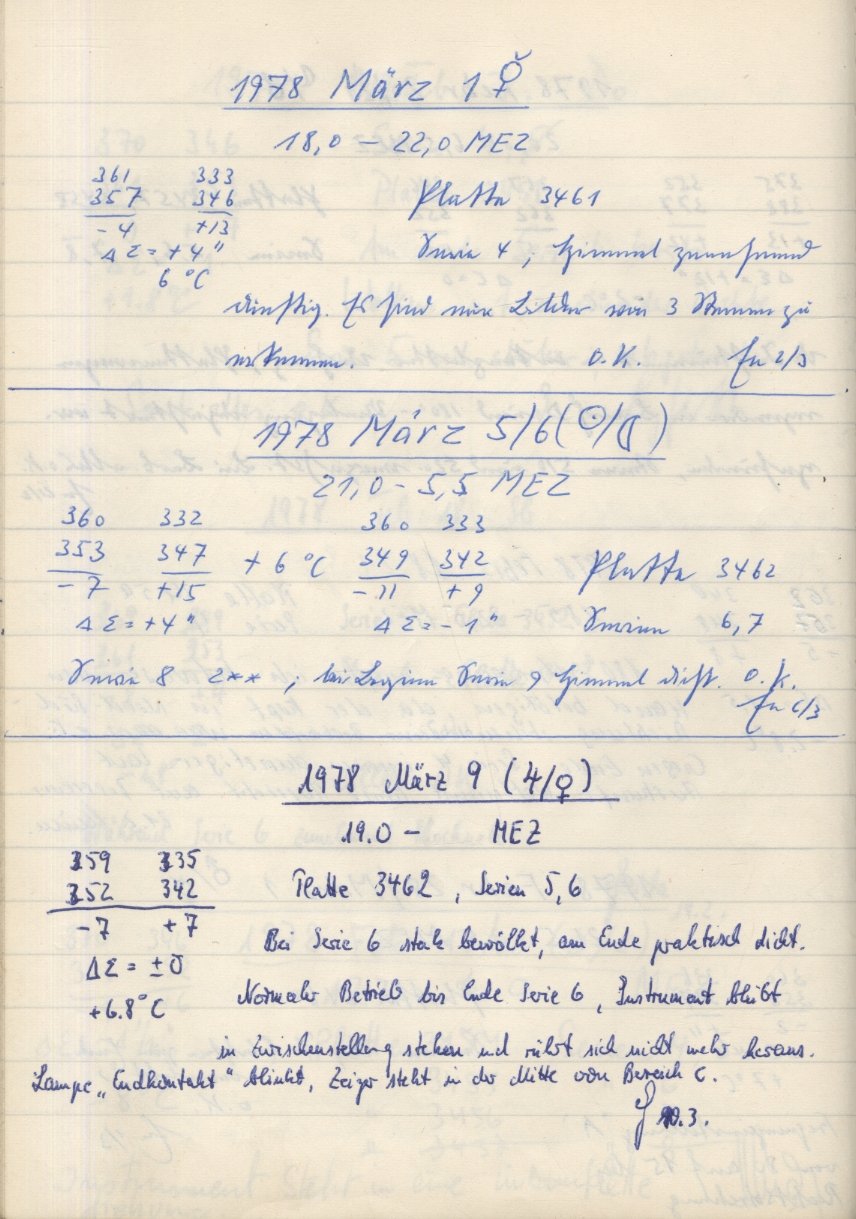 1978 März 1 ☿
18,0 – 22,0 MEZ
361 333
357 346 Platte 3461
-4 +13
ΔΣ = +4" Serie 4, Himmel zunehmend
6 °C
dunstig. Es sind nur Bilder von 3 Sternen zu
erkennen. O.K. 2/3
1978 März 5/6 (☉/☾)
21,0 – 5,5 MEZ
360 332 360 333
353 347 +6 °C 349 342 Platte 3462
-7 +15 -11 +9
ΔΣ = +4" ΔΣ = -1" Serien 6,7
Serie 8 2**, bei Beginn Serie 9 Himmel dicht. O.K.
6/3
1978 März 9 (♃/♀)
19.0 – MEZ
359 335
352 342 Platte 3462, Serien 5, 6
-7 +7
Bei Serie 6 stark bewölkt, am Ende praktisch dicht.
ΔΣ = ±0
+6.8°C Normaler Betrieb bis Ende Serie 6, Instrument bleibt
in Zwischenstellung stehen und rührt sich nicht mehr heraus.
Lampe „Endkontakt" blinkt, Zeiger steht in der Mitte von Bereich C.
10.3.